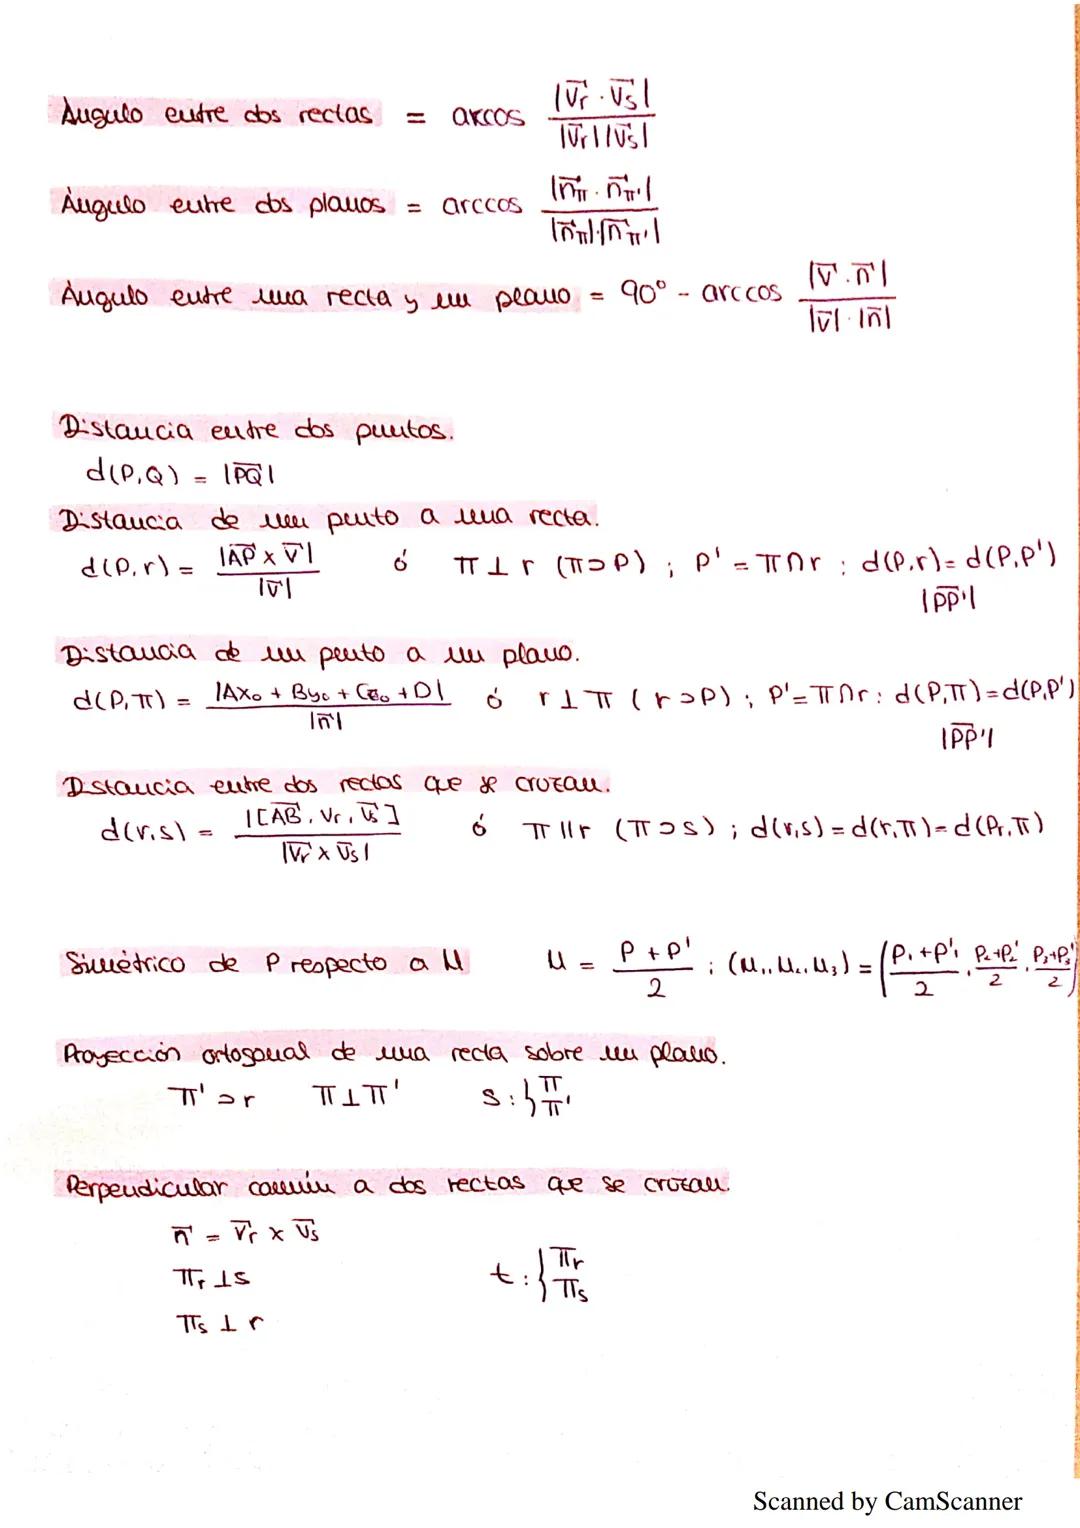 Ángulo entre dos rectas = arccos |v⃗r · v⃗s| / |v⃗r| |v⃗s|
Ángulo entre dos planos = arccos |n⃗π · n⃗π'| / |n⃗π|·|n⃗π'|
Ángulo entre una recta y un plano = 90° - arccos |v⃗ · n⃗| / |v⃗| · |n⃗|
Distancia entre dos puntos.
d(P,Q) = |PQ⃗|
Distancia de un punto a una recta.
d(P,r) = |AP⃗ x v⃗| / |v⃗| ó π ⊥ r (π⊃P) ; P' = π∩r : d(P,r) = d(P,P')
|PP'⃗|
Distancia de un punto a un plano.
d(P,π) = |Ax₀ + By₀ + Cz₀ + D| / |n⃗| ó r ⊥ π (r⊃P) ; P' = π∩r : d(P,π) = d(P,P')
|PP'⃗|
Distancia entre dos rectas que se cruzan.
d(r,s) = |[AB⃗, Vr, v⃗s] / |v⃗r x v⃗s| ó π ∥ r (π⊃s) ; d(r,s) = d(r,π) = d(Pr,π)
Simétrico de P respecto a M M = P + P' / 2 ; (M₁, M₂, M₃) = (P₁+P'₁ / 2, P₂+P₂' / 2, P₃+P₃' / 2)
Proyección ortogonal de una recta sobre un plano.
π' ⊃ r π ⊥ π' s : } π π'
Perpendicular común a dos rectas que se cruzan.
n⃗ = v⃗r x v⃗s
πr ⊥ s t : } πr πs
πs ⊥ r
Scanned by CamScanner